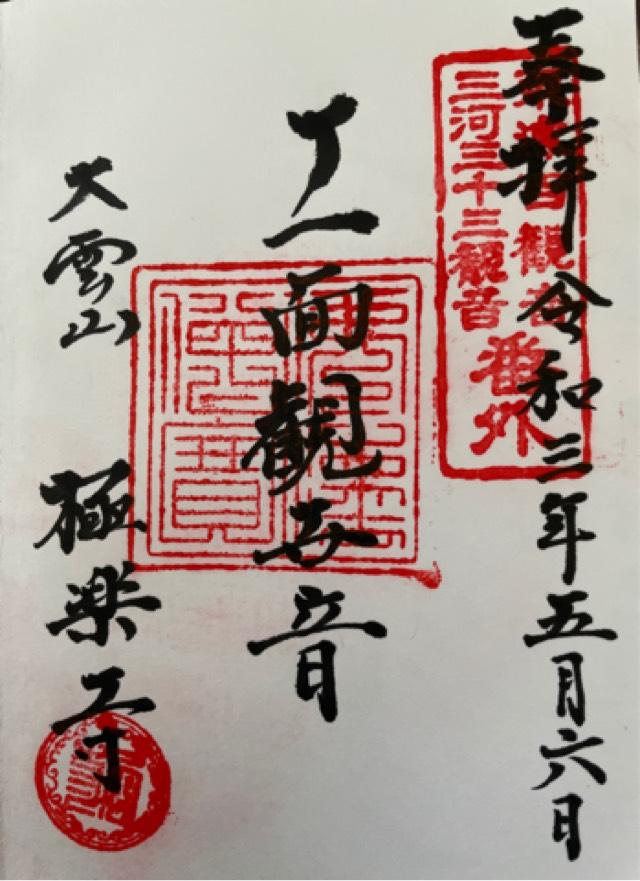 奉拝 令和三年五月六日
観音
三河三十三観音
番外
十一面観世音
佛法僧寶
大雲山 極楽寺